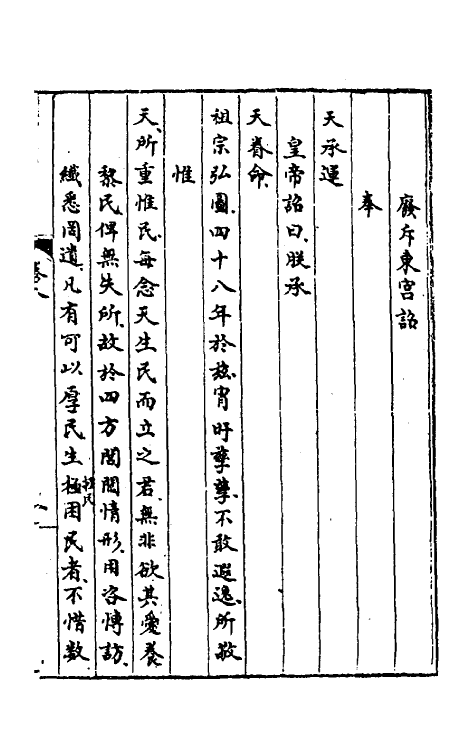 廢斥東宮詔
奉
天承運
皇帝詔曰朕承
天眷命
祖宗弘圖四十八年於茲宵旰孳孳不敢遐逸所敬
惟
天所重惟民每念天生民而立之君無非欲其愛養
黎民俾無失所故於四方閭閻情形用咨愽訪
纖悉罔遺凡有可以厚民生拯困民者不惜数
拯民
卷八